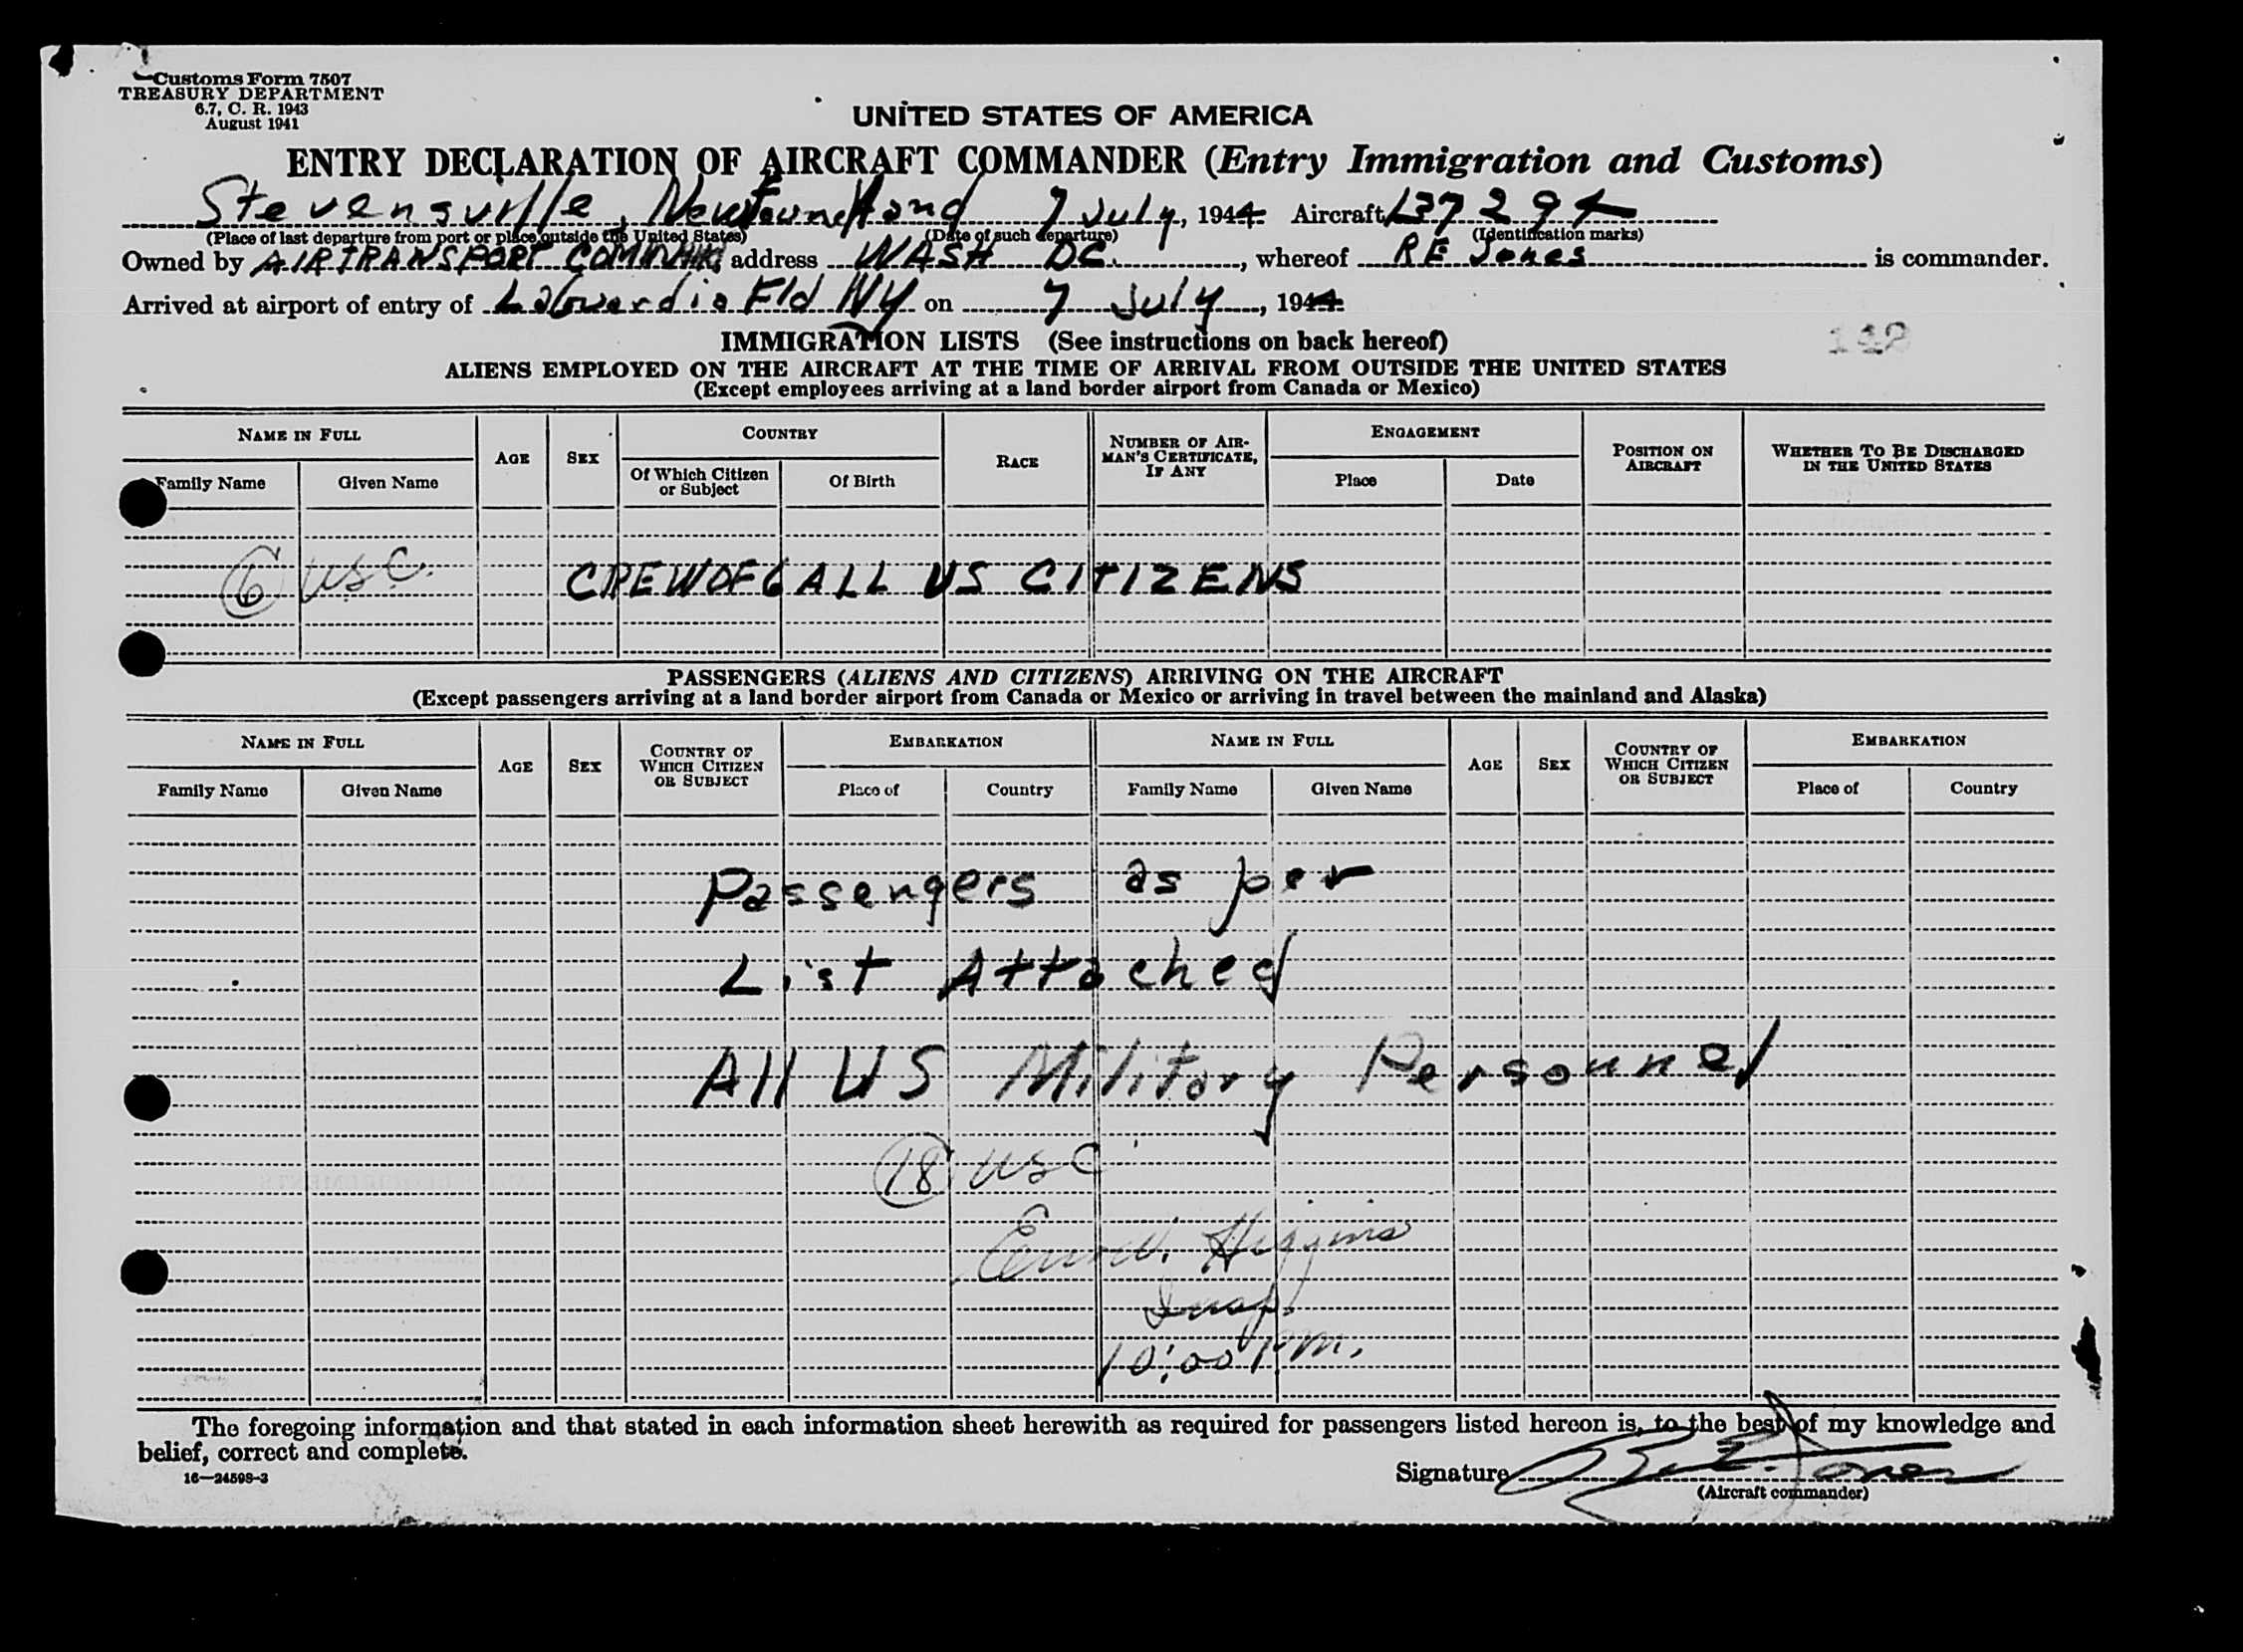 Customs Form 7507
TREASURY DEPARTMENT
6.7, C. R. 1943
August 1941
UNITED STATES OF AMERICA
ENTRY DECLARATION OF AIRCRAFT COMMANDER (Entry Immigration and Customs)
Stevensville, Newfoundland 7 July, 1944 Aircraft
(Place of last departure from port or place outside the United States) (Date of such departure) (Identification marks)
Owned by AIR TRANSPORT COMMAND, address WASH DC, whereof RE Jones is commander.
Arrived at airport of entry of LaGuardia Fld NY on 7 July, 1944
IMMIGRATION LISTS (See instructions on back hereof)
ALIENS EMPLOYED ON THE AIRCRAFT AT THE TIME OF ARRIVAL FROM OUTSIDE THE UNITED STATES
(Except employees arriving at a land border airport from Canada or Mexico)
NAME IN FULL AGE SEX COUNTRY RACE NUMBER OF AIRMAN'S CERTIFICATE, IF ANY ENGAGEMENT POSITION ON AIRCRAFT WHETHER TO BE DISCHARGED IN THE UNITED STATES
Family Name Given Name Of Which Citizen or Subject Of Birth Place Date
6 USC. CREW OF 6 ALL US CITIZENS
PASSENGERS (ALIENS AND CITIZENS) ARRIVING ON THE AIRCRAFT
(Except passengers arriving at a land border airport from Canada or Mexico or arriving in travel between the mainland and Alaska)
NAME IN FULL AGE SEX COUNTRY OF WHICH CITIZEN OR SUBJECT EMBARKATION NAME IN FULL AGE SEX COUNTRY OF WHICH CITIZEN OR SUBJECT EMBARKATION
Family Name Given Name Place of Country Family Name Given Name Place of Country
Passengers as per
List Attached
All US Military Personnel
18 USC
Higgins
Insp.
10:00 PM.
The foregoing information and that stated in each information sheet herewith as required for passengers listed hereon is, to the best of my knowledge and
belief, correct and complete.
16—24598-3
Signature R. E. Jones
(Aircraft commander)